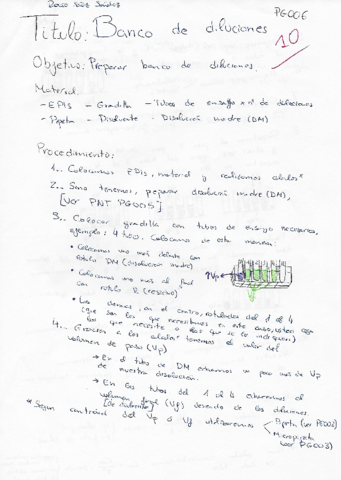 PG006
Título: Banco de diluciones
10
Objetivo: Preparar banco de diluciones.
Material:
- EPIs - Gradilla - Tubos de ensayo x nº de diluciones
- Pipeta - Disolvente - Disolución madre (DM)
Procedimiento:
1.. Colocamos EPIs, material y realizamos
2.. Si no tenemos, preparar disolución madre (DM),
[VER PNT PG005]
3.. Colocar gradilla con tubos de ensayo necesarios,
ejemplo: 4 tubos. Colocamos de esta manera:
• Colocamos uno más delante con
rótulo DM (disolución madre)
• Colocamos uno más al final
con rótulo R (resto)
• Los demás, en el centro, rotulados del 1 al 4
(que son los que necesitamos en este caso,
los que necesite o los que se le indiquen)
4.. Gracias a los tenemos el valor del
volumen de paso (Vp)
→ En el tubo de DM echaremos un poco más de Vp
de nuestra disolución.
→ En los tubos del 1 al 4 echaremos el
volumen (Vf) de las diluciones
[de disolvente]
* Según cantidad del Vp o Vf utilizaremos
Pipeta (ver PG002)
Micropipeta
(ver PG003)